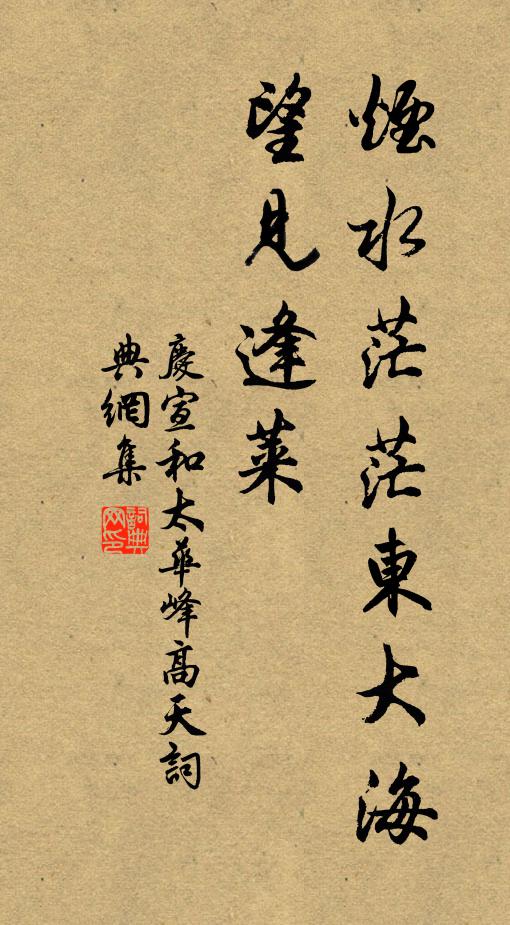 煙水茫茫東大海
望見逢萊
慶宣和太華峰高天詞
典網集
詞典网印